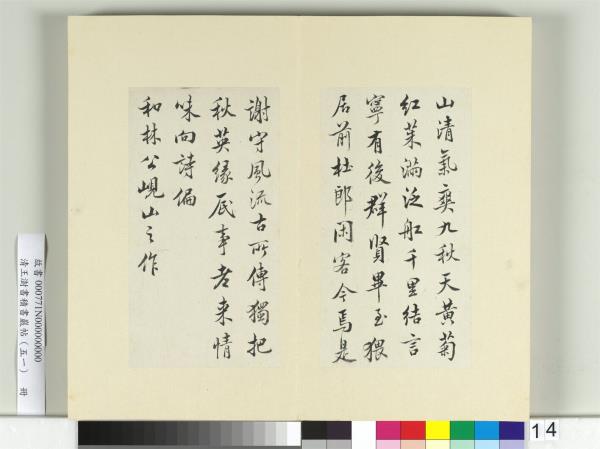 山清氣爽九秋天黃菊
紅茱滿泛船千里結言
寧有後群賢畢至猥
居前杜郎閑客今焉是
謝守風流古所傳獨把
秋英緣底事老來情
味向詩偏
和林公峴山之作
故書000771N000000000
清王澍書積書巖帖(五一) 冊
14